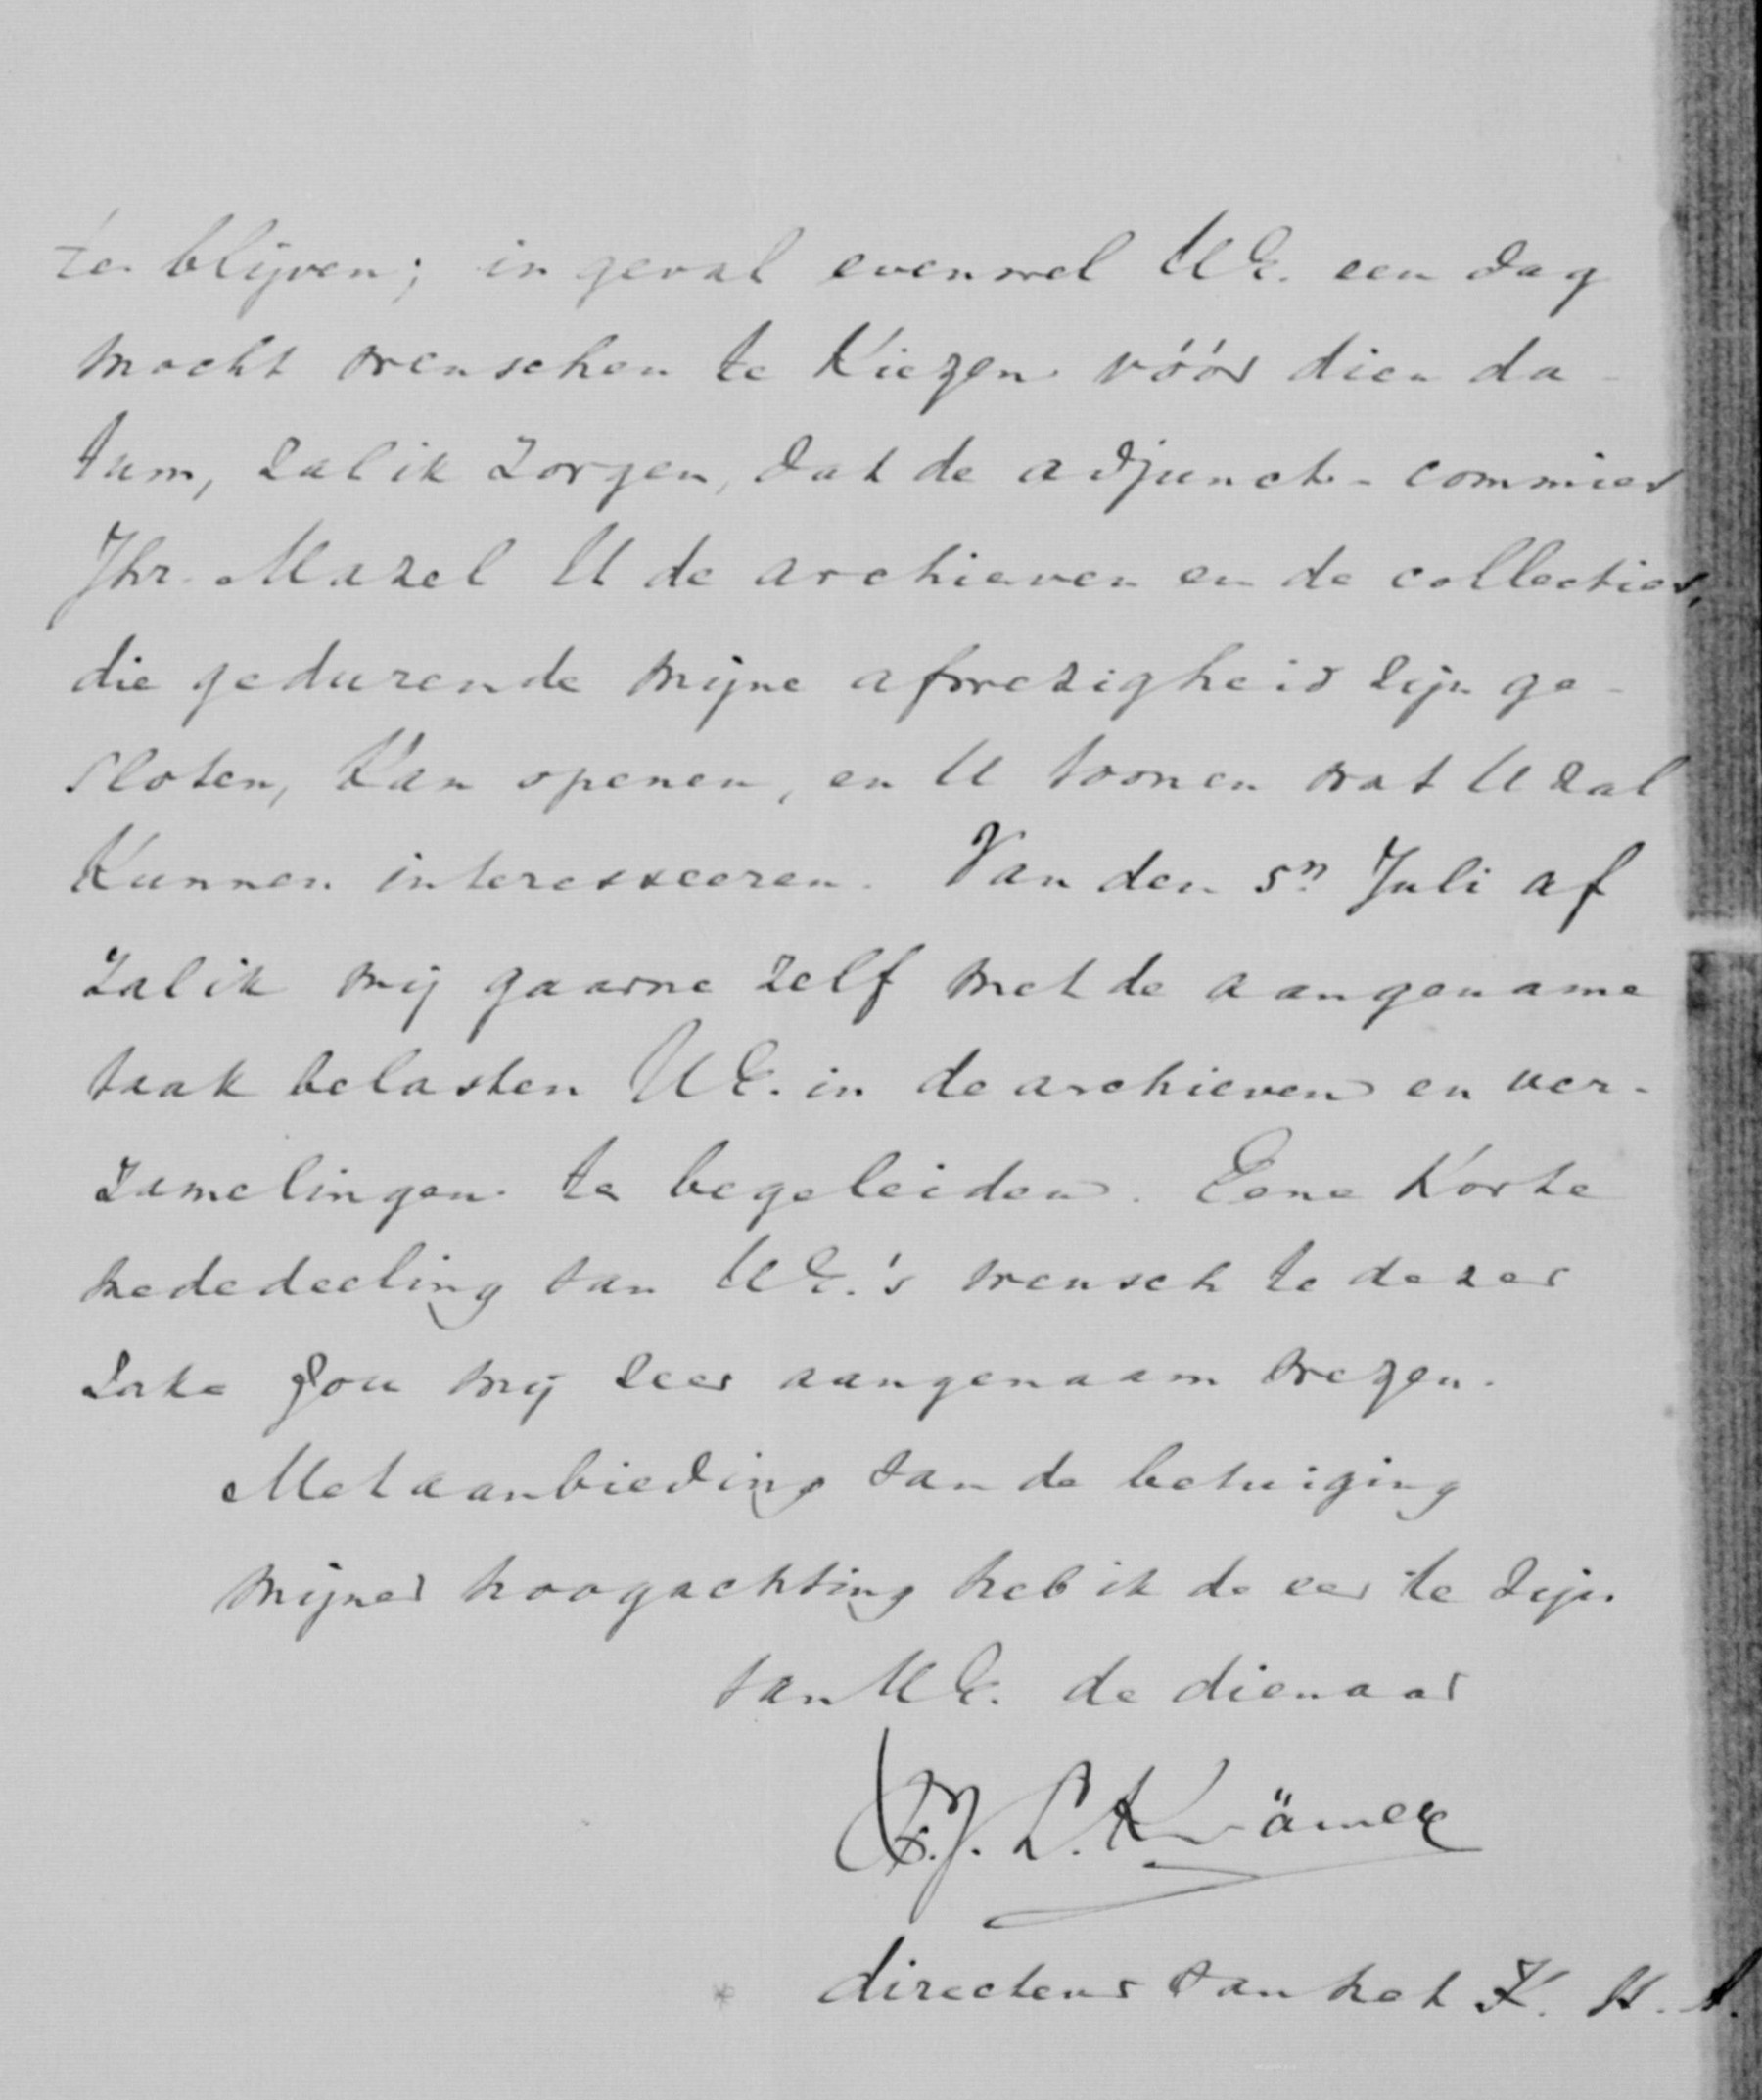 te blijven; in geval evenwel UE. een dag
mocht wenschen te Kiezen vóór dien da-
tum, zal ik zorgen, dat de adjunct-commies
Jhr. Mazel U de archieven en de collecties,
die gedurende mijne afwezigheid zijn ge-
sloten, kan openen, en U toonen wat U zal
Kunnen interesseeren. Van den 5n Juli af
zal ik mij gaarne zelf met de aangename
taak belasten UE. in de archieven en ver-
zamelingen te begeleiden. Eene Korte
mededeeling van UE.'s wensch te dezer
zake zou mij zeer aangenaam wezen.
Met aanbieding van de betuiging
mijner hoogachting heb ik de eer te zijn
van UE. de dienaar
F. J. L. Krämer
directeur van het K. H. A.